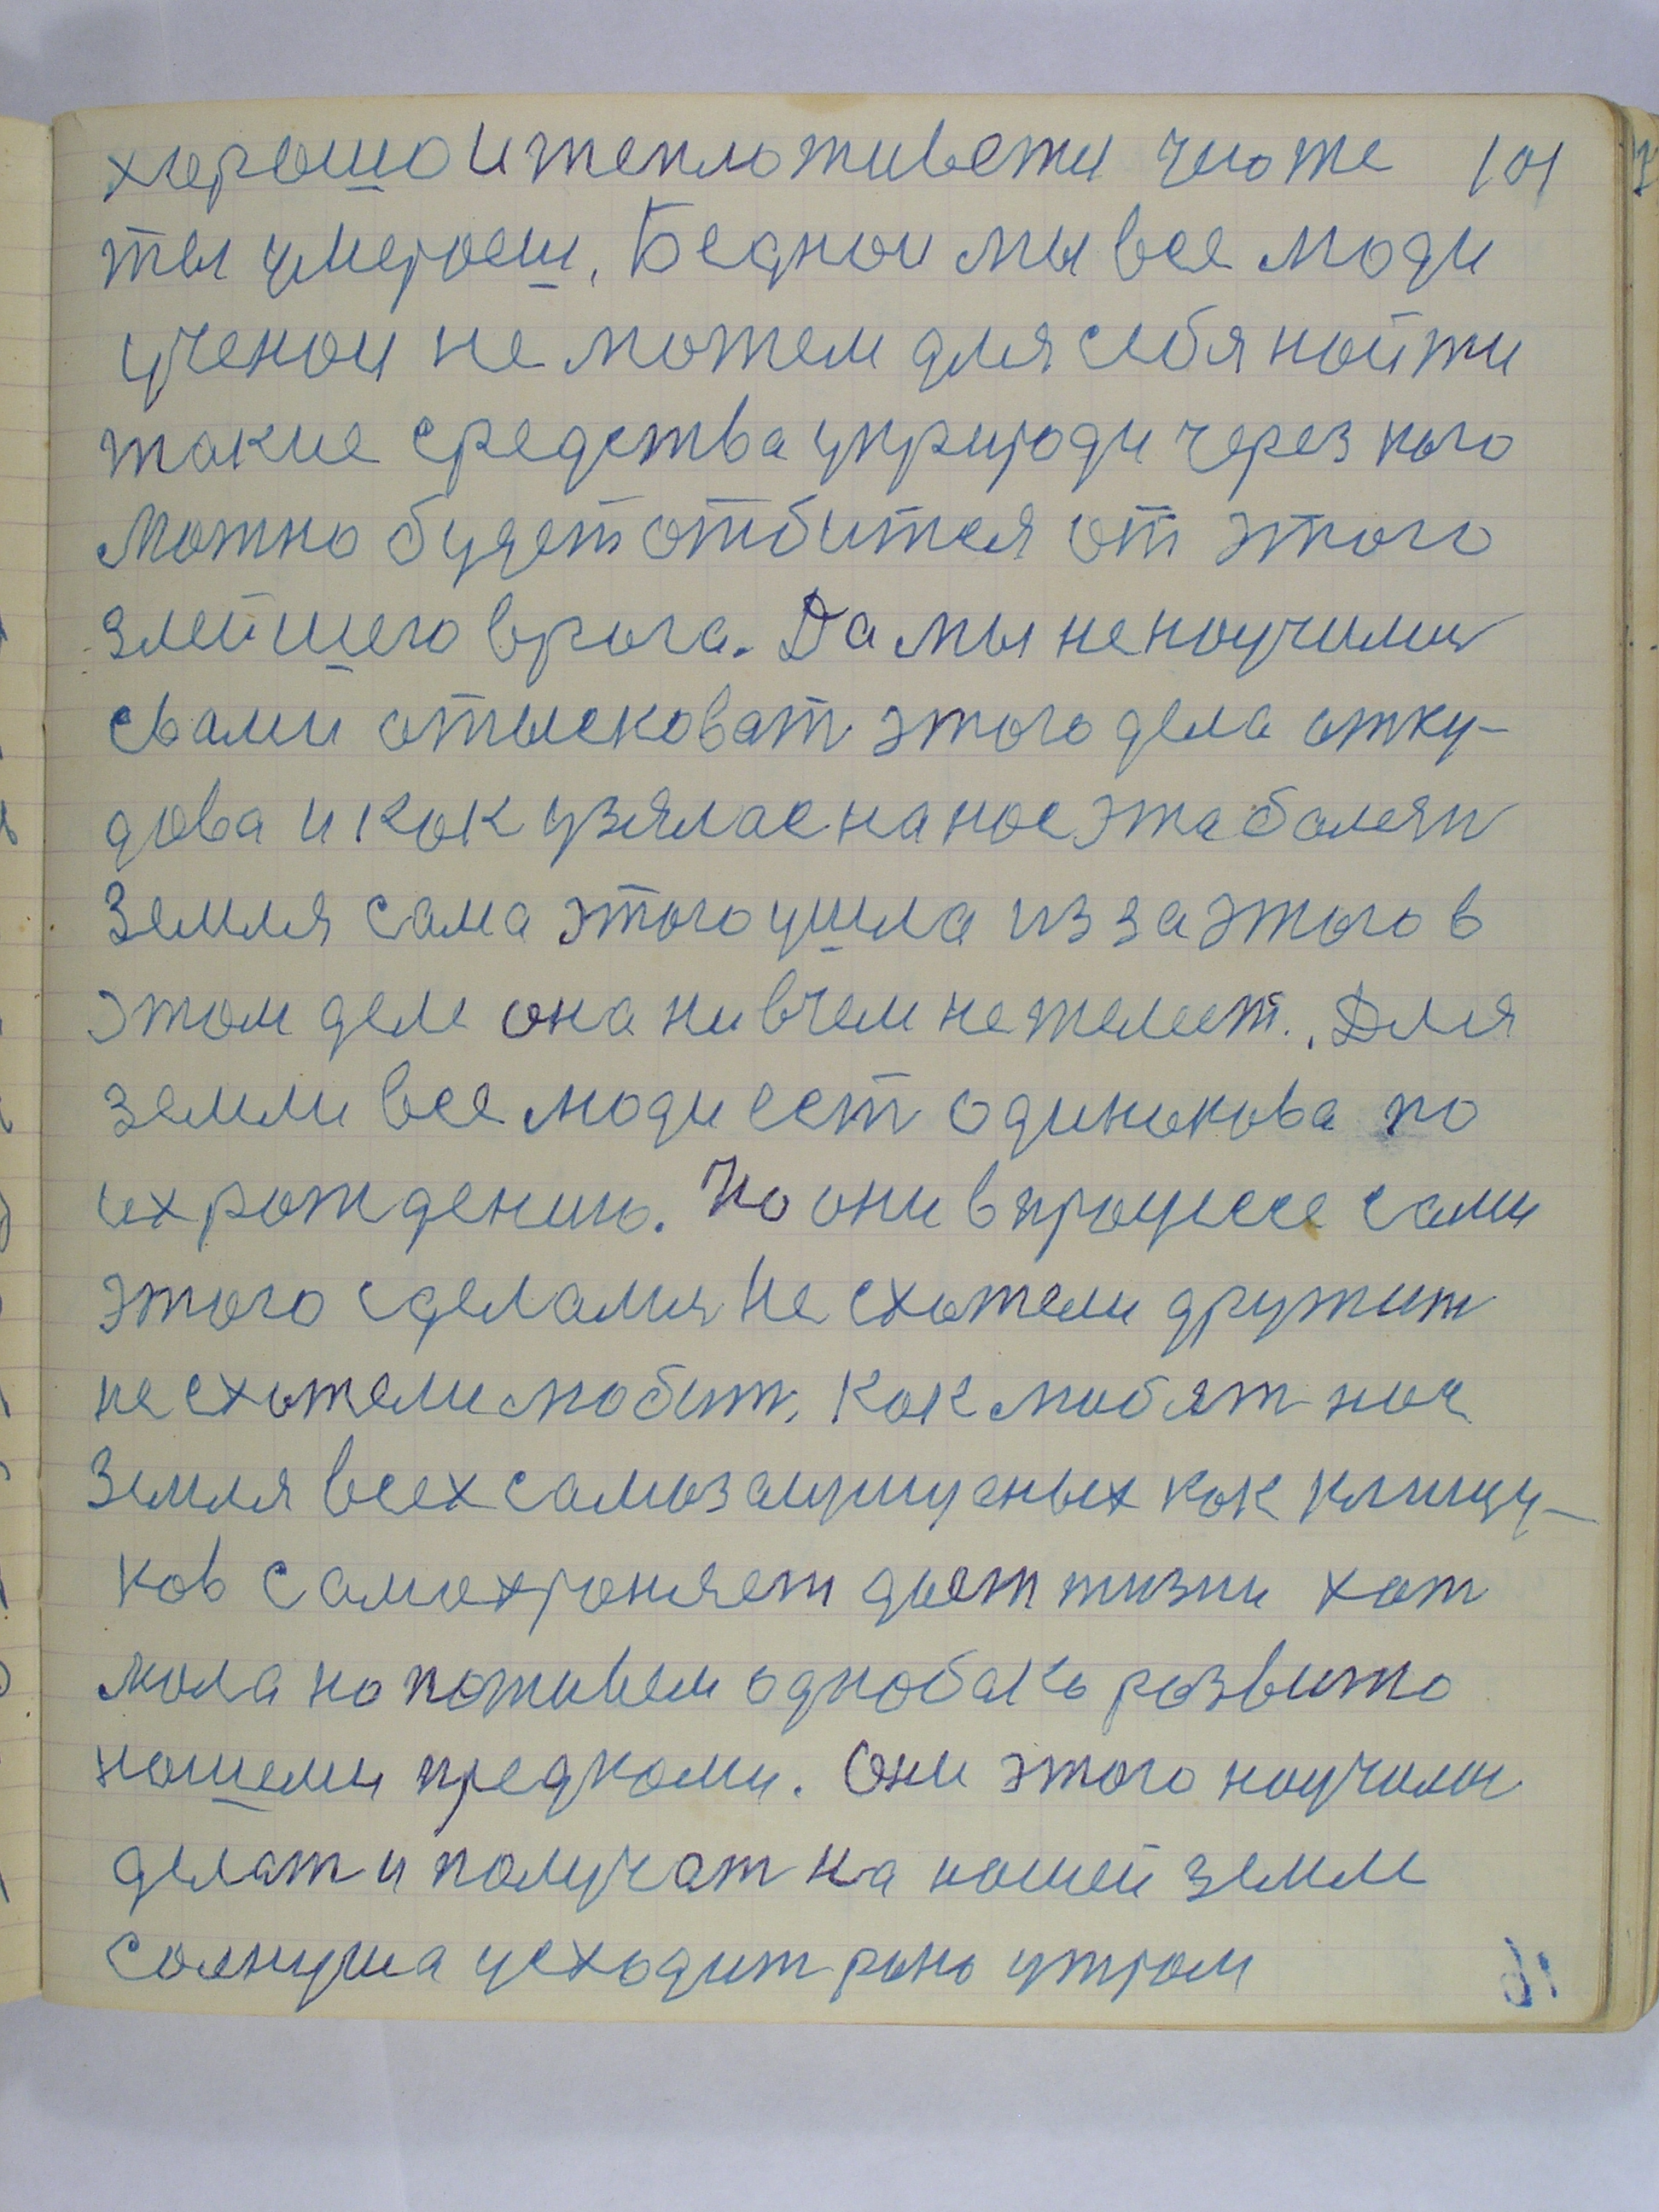 хорошо и тепло живети чего же 101
ты умироеш. Бедной мы все люди
ученои не можем для себя нойти
такие средства у природи через кого
можно будет отбится от этого
злейшего врога. Да мы не ноучились
свами отысковат этого дела отку-
дова и кок узялас на нос эта болезн
Земля сама этого ушла из за этого в
этом деле она ни в чем не желеет. Для
земли все люди ест одинокова по
их рождению. Но они в процессе сами
этого сделались не схотели дружит
не схотели любит. Кок любят ноч
Земля всех самозащищеных кок клищу-
ков самохроняет дает жизни хот
мола но поживем однобако розвито
ношеми предкоми. Они этого ноучилис
делат и получат на ношей земле
солнушка усходит рано утром